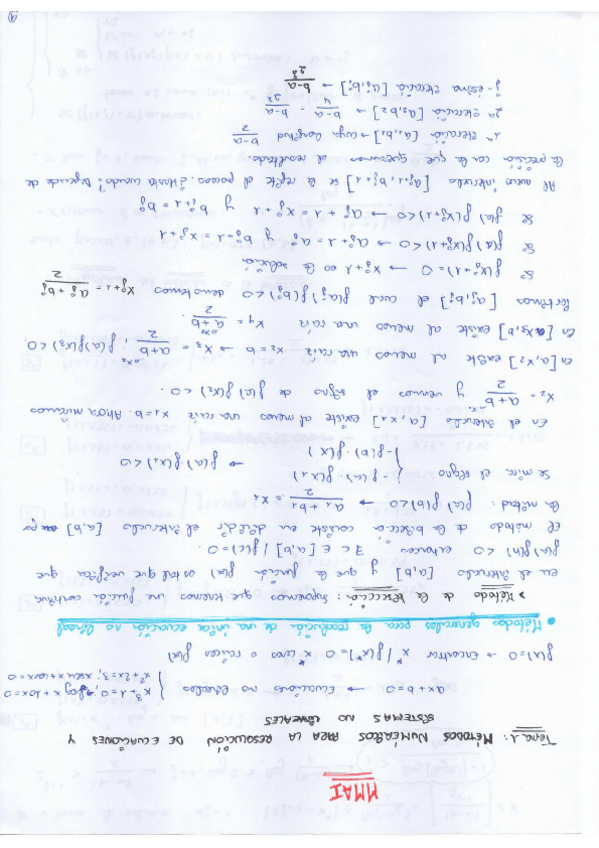 MMAI
Tema 1: MÉTODOS NUMÉRICOS PARA LA RESOLUCIÓN DE ECUACIONES Y
SISTEMAS NO LINEALES
ax+b=0 → Ecuaciones no lineales { x³+1=0;
x²+2x=3;
f(x)=0 → Encontrar x* / f(x*)=0 x* ceros o raíces f(x)
• Métodos generales para la resolución de una única ecuación no lineal
> Método de la bisección: Suponemos que tenemos una función continua
en el intervalo [a,b] y que la función f(x) es tal que verifica que
f(a)f(b) <0 entonces ∃ c ∈ [a,b] / f(c)=0.
El método de la bisección consiste en dividir el intervalo [a,b] por
la mitad: f(a)f(b)<0 → = x₁
Se mira el signo { - f(a)·f(x₁)
- f(b)·f(x₁) → f(a)f(x₁) <0
En el intervalo [a,x₁] existe al menos una raíz x₁=b. Ahora miramos
x₂= a+b/2 y vemos el signo de f(a)f(x₂) <0.
en [a,x₂] existe al menos una raíz x₂=b → x₃= a+b/2; f(a)f(x₃)<0.
En [a,x₃] existe al menos una raíz x₄= a+b/2.
Partimos [aj,bj] el cual f(aj)f(bj)<0 denotamos xj+1= aj+bj/2
Si f(xj+1)=0 → xj+1 es la solución
Si f(a)f(xj+1)<0 → aj+1=aj y bj+1=xj+1
Si f(a)f(xj+1)<0 → aj+1=xj+1 y bj+1=bj
Al nuevo intervalo [aj+1,bj+1] se le repite el proceso. ¿Hasta cuándo? Depende de
la precisión con la que queramos el resultado.
1ª iteración [a1,b1] → cuya longitud b-a/2
2ª iteración [a2,b2] → b-a/4 = b-a/2²
j-ésima iteración [aj,bj] → b-a/2ʲ